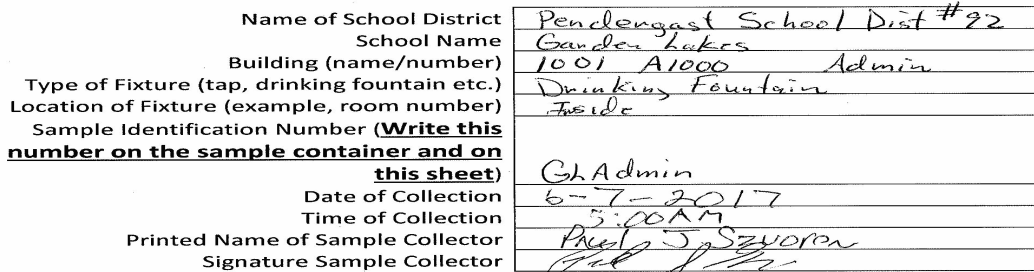 Name of School District Pendergast School Dist #92
School Name Garden Lakes
Building (name/number) 1001 A1000 Admin
Type of Fixture (tap, drinking fountain etc.) Drinking Fountain
Location of Fixture (example, room number) Inside
Sample Identification Number (Write this
number on the sample container and on
this sheet) GLAdmin
Date of Collection 6-7-2017
Time of Collection 5:00AM
Printed Name of Sample Collector Paul J
Signature Sample Collector